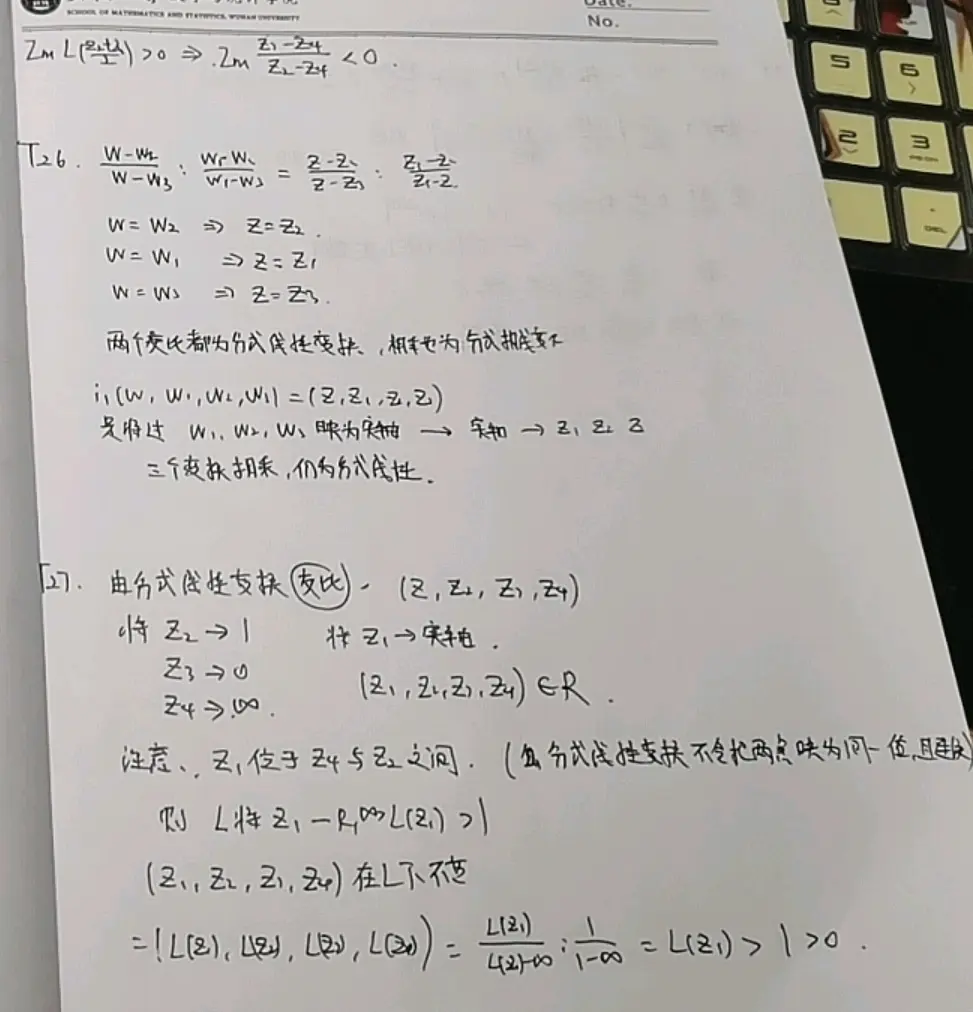 SCHOOL OF MATHEMATICS AND STATISTICS, WUHAN UNIVERSITY
Date:
No.
Im L(\frac{z_2+z_3}{2}) > 0 ⇒ Im \frac{z_1-z_4}{z_2-z_4} < 0.
T26. \frac{w-w_2}{w-w_3} : \frac{w_1-w_2}{w_1-w_3} = \frac{z-z_2}{z-z_3} : \frac{z_1-z_2}{z_1-z}
w = w_2 ⇒ z = z_2.
w = w_1 ⇒ z = z_1
w = w_3 ⇒ z = z_3.
两个交比都为分式线性变换、相等也为分式
(w, w_1, w_2, w_3) = (z, z_1, z, z_3)
是将过 w_1, w_2, w_3 映为实轴 → 实轴 → z_1 z_2 z
三个变换相乘,仍为分式线性.
T27. 由分式线性变换 交比. (z, z_2, z_3, z_4)
将 z_2 → 1 将 z_1 → 实轴.
z_3 → 0
(z_1, z_2, z_3, z_4) ∈ R.
z_4 → ∞.
注意、z_1 位于 z_4 与 z_2 之间. (且分式线性变换不会把两点映为同一值,且连续)
则 L将 z_1 — R, L(z_1) > 1
(z_1, z_2, z_3, z_4) 在L下不变
= (L(z), L(z_2), L(z_3), L(z_4)) = \frac{L(z_1)}{L(z)-∞} : \frac{1}{1-∞} = L(z_1) > 1 > 0.
5
6
2
3
DEL